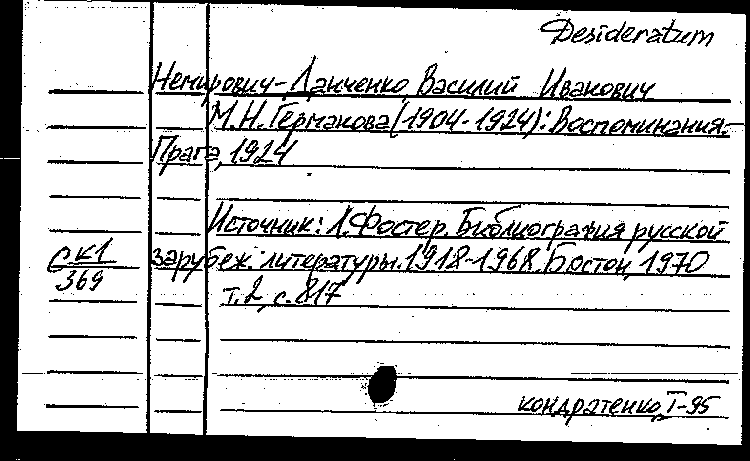 Desideratum
Немирович-Данченко, Василий Иванович
М.Н. Германова (1904-1924): Воспоминания.-
Прага, 1924
Источник: Л. Фостер. Библиография русской
зарубеж. литературы. 1918-1968. Бостон, 1970
т.2, с. 817
СК1
369
кондратенко, I-95